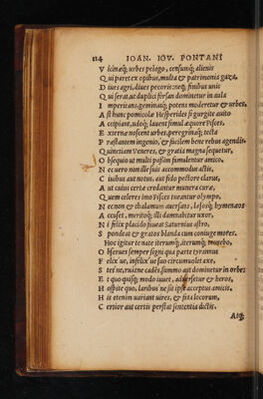 114 IOAN. IOV. PONTANI
Vicinæq; urbes pelago, censumq; alienis
Qui paret ex opibus, multa & patrimonia gaza,
Diues agri, diues pecoris
Qui serat, ut duplici forsan dominetur in aula
Imperitans, geminasq; potens moderetur & urbes.
Ast hunc pomicolæ Hesperides si gurgite austo
Accipiant, udeq; lauent simul æquore Pisces,
Externæ noscent urbes, peregrinaq; tecta
Præstantem ingenio, & facilem bene rebus agendis.
Quin etiam Veneres, & gratia magna sequetur,
Obsequio ut multi passim simulentur amico.
Ne uero non ille suis accommodus
Ciuibus aut notus, aut fido pectore clarus,
Aut cuius certæ credantur munera curæ,
Quem celeres imo Pisces tueantur olympo.
Nec non & thalamum auersata, lesosq; hymenæos
Accuset, meritoq; illi damnabitur uxor,
Ni felix placido fineat Saturnius astro,
Spondeat & gratos blanda cum coniuge mores.
Hoc igitur te nate iterumq; iterumq; monebo,
Obserues semper signi qua parte tyrannus
Felix ue, infelix ue suo circumuolet axe.
Sterne, ruatne cadens summo aut dominetur in orbe:
Et quo quisq; modo iuuet, aduersetur & heros,
Hospite quo, laribus ne sit ipse acceptus amicis.
Hic etenim uariant uires, & fata locorum,
Certior aut certis perstat sententia dictis.
Atq;